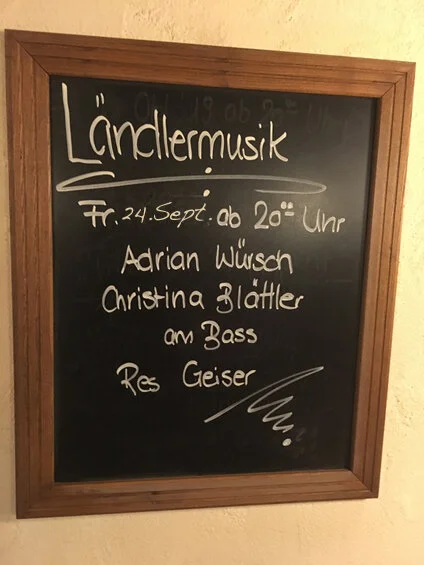 Ländlermusik
Fr. 24. Sept. ab 20⁰⁰ Uhr
Adrian Würsch
Christina Blättler
am Bass
Res Geiser